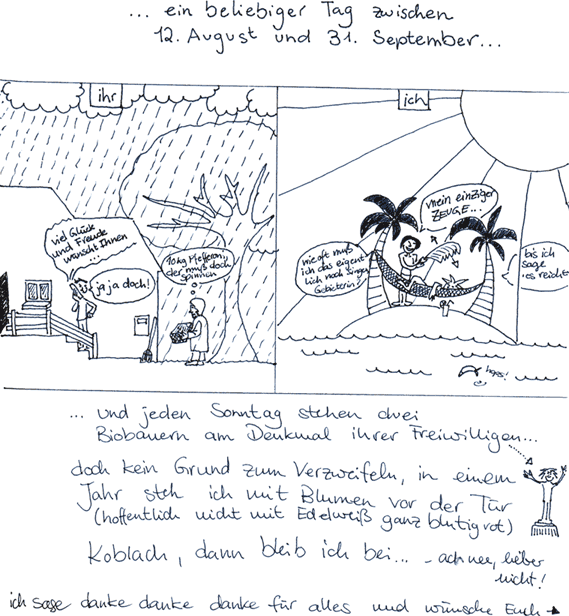 ... ein beliebiger Tag zwischen
12. August und 31. September...
ihr
ich
viel Glück
und Freude
wünscht Ihnen
...
ja ja doch!
10 kg Pfefferoni,
der muß doch
spinnen
mein einziger
ZEUGE...
wie oft muß
ich das eigent-
lich noch singen,
Gebieterin?
bis ich
sage
es reicht
hops!
... und jeden Sonntag stehen drei
Biobauern am Denkmal ihrer Freiwilligen...
doch kein Grund zum Verzweifeln, in einem
Jahr steh ich mit Blumen vor der Tür
(hoffentlich nicht mit Edelweiß ganz blutigrot)
Koblach, dann bleib ich bei... - ach nee, lieber
nicht!
ich sage danke danke danke für alles und wünsche Euch